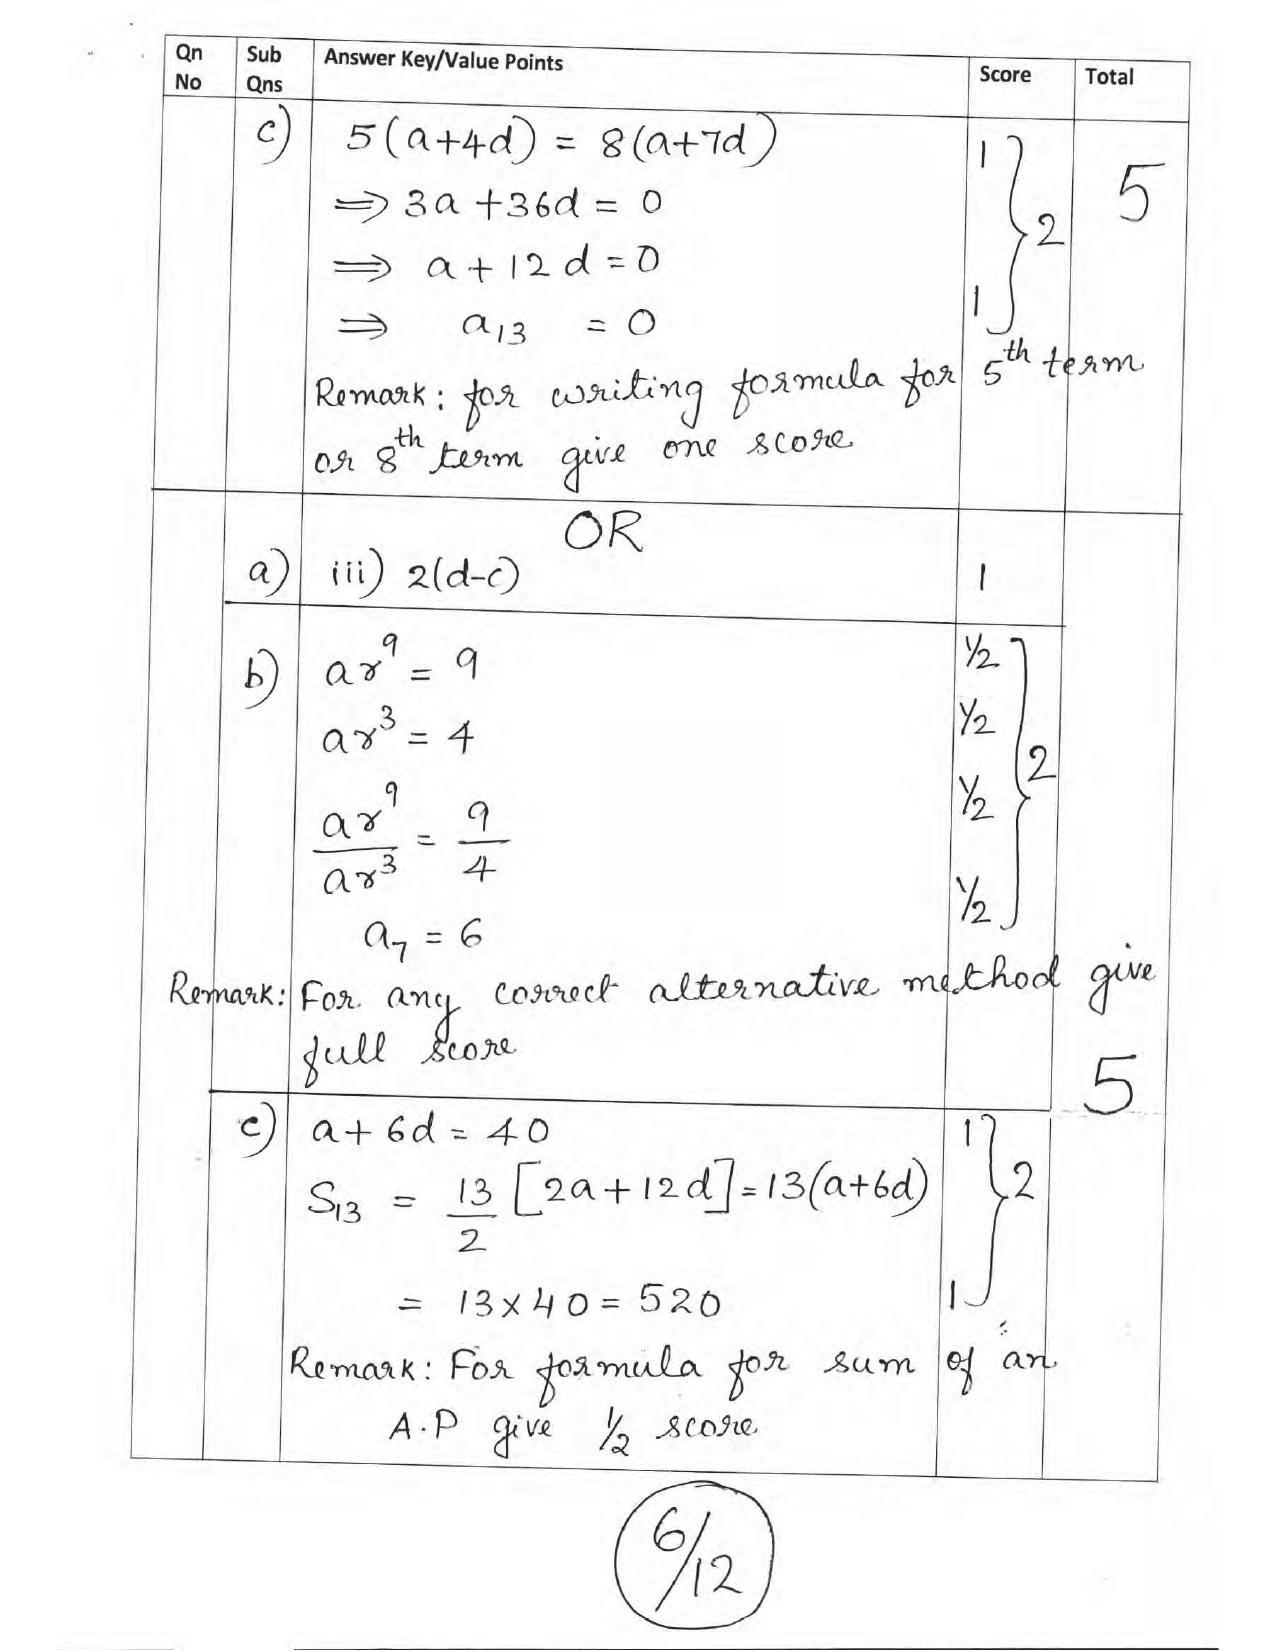 Qn No Sub Qns Answer Key/Value Points Score Total
c) 5(a+4d) = 8(a+7d) 1
⇒ 3a +36d = 0 5
⇒ a + 12d = 0 2
⇒ a₁₃ = 0 1
Remark: for writing formula for 5th term
or 8th term give one score
OR
a) iii) 2(d-c) 1
b) ar⁹ = 9 ½
ar³ = 4 ½
ar⁹/ar³ = 9/4 ½ 2
a₇ = 6 ½
Remark: For any correct alternative method give
full score
5
c) a + 6d = 40 1
S₁₃ = 13/2 [2a+12d] = 13(a+6d) 2
= 13×40 = 520 1
Remark: For formula for sum of an
A.P give ½ score
6/12